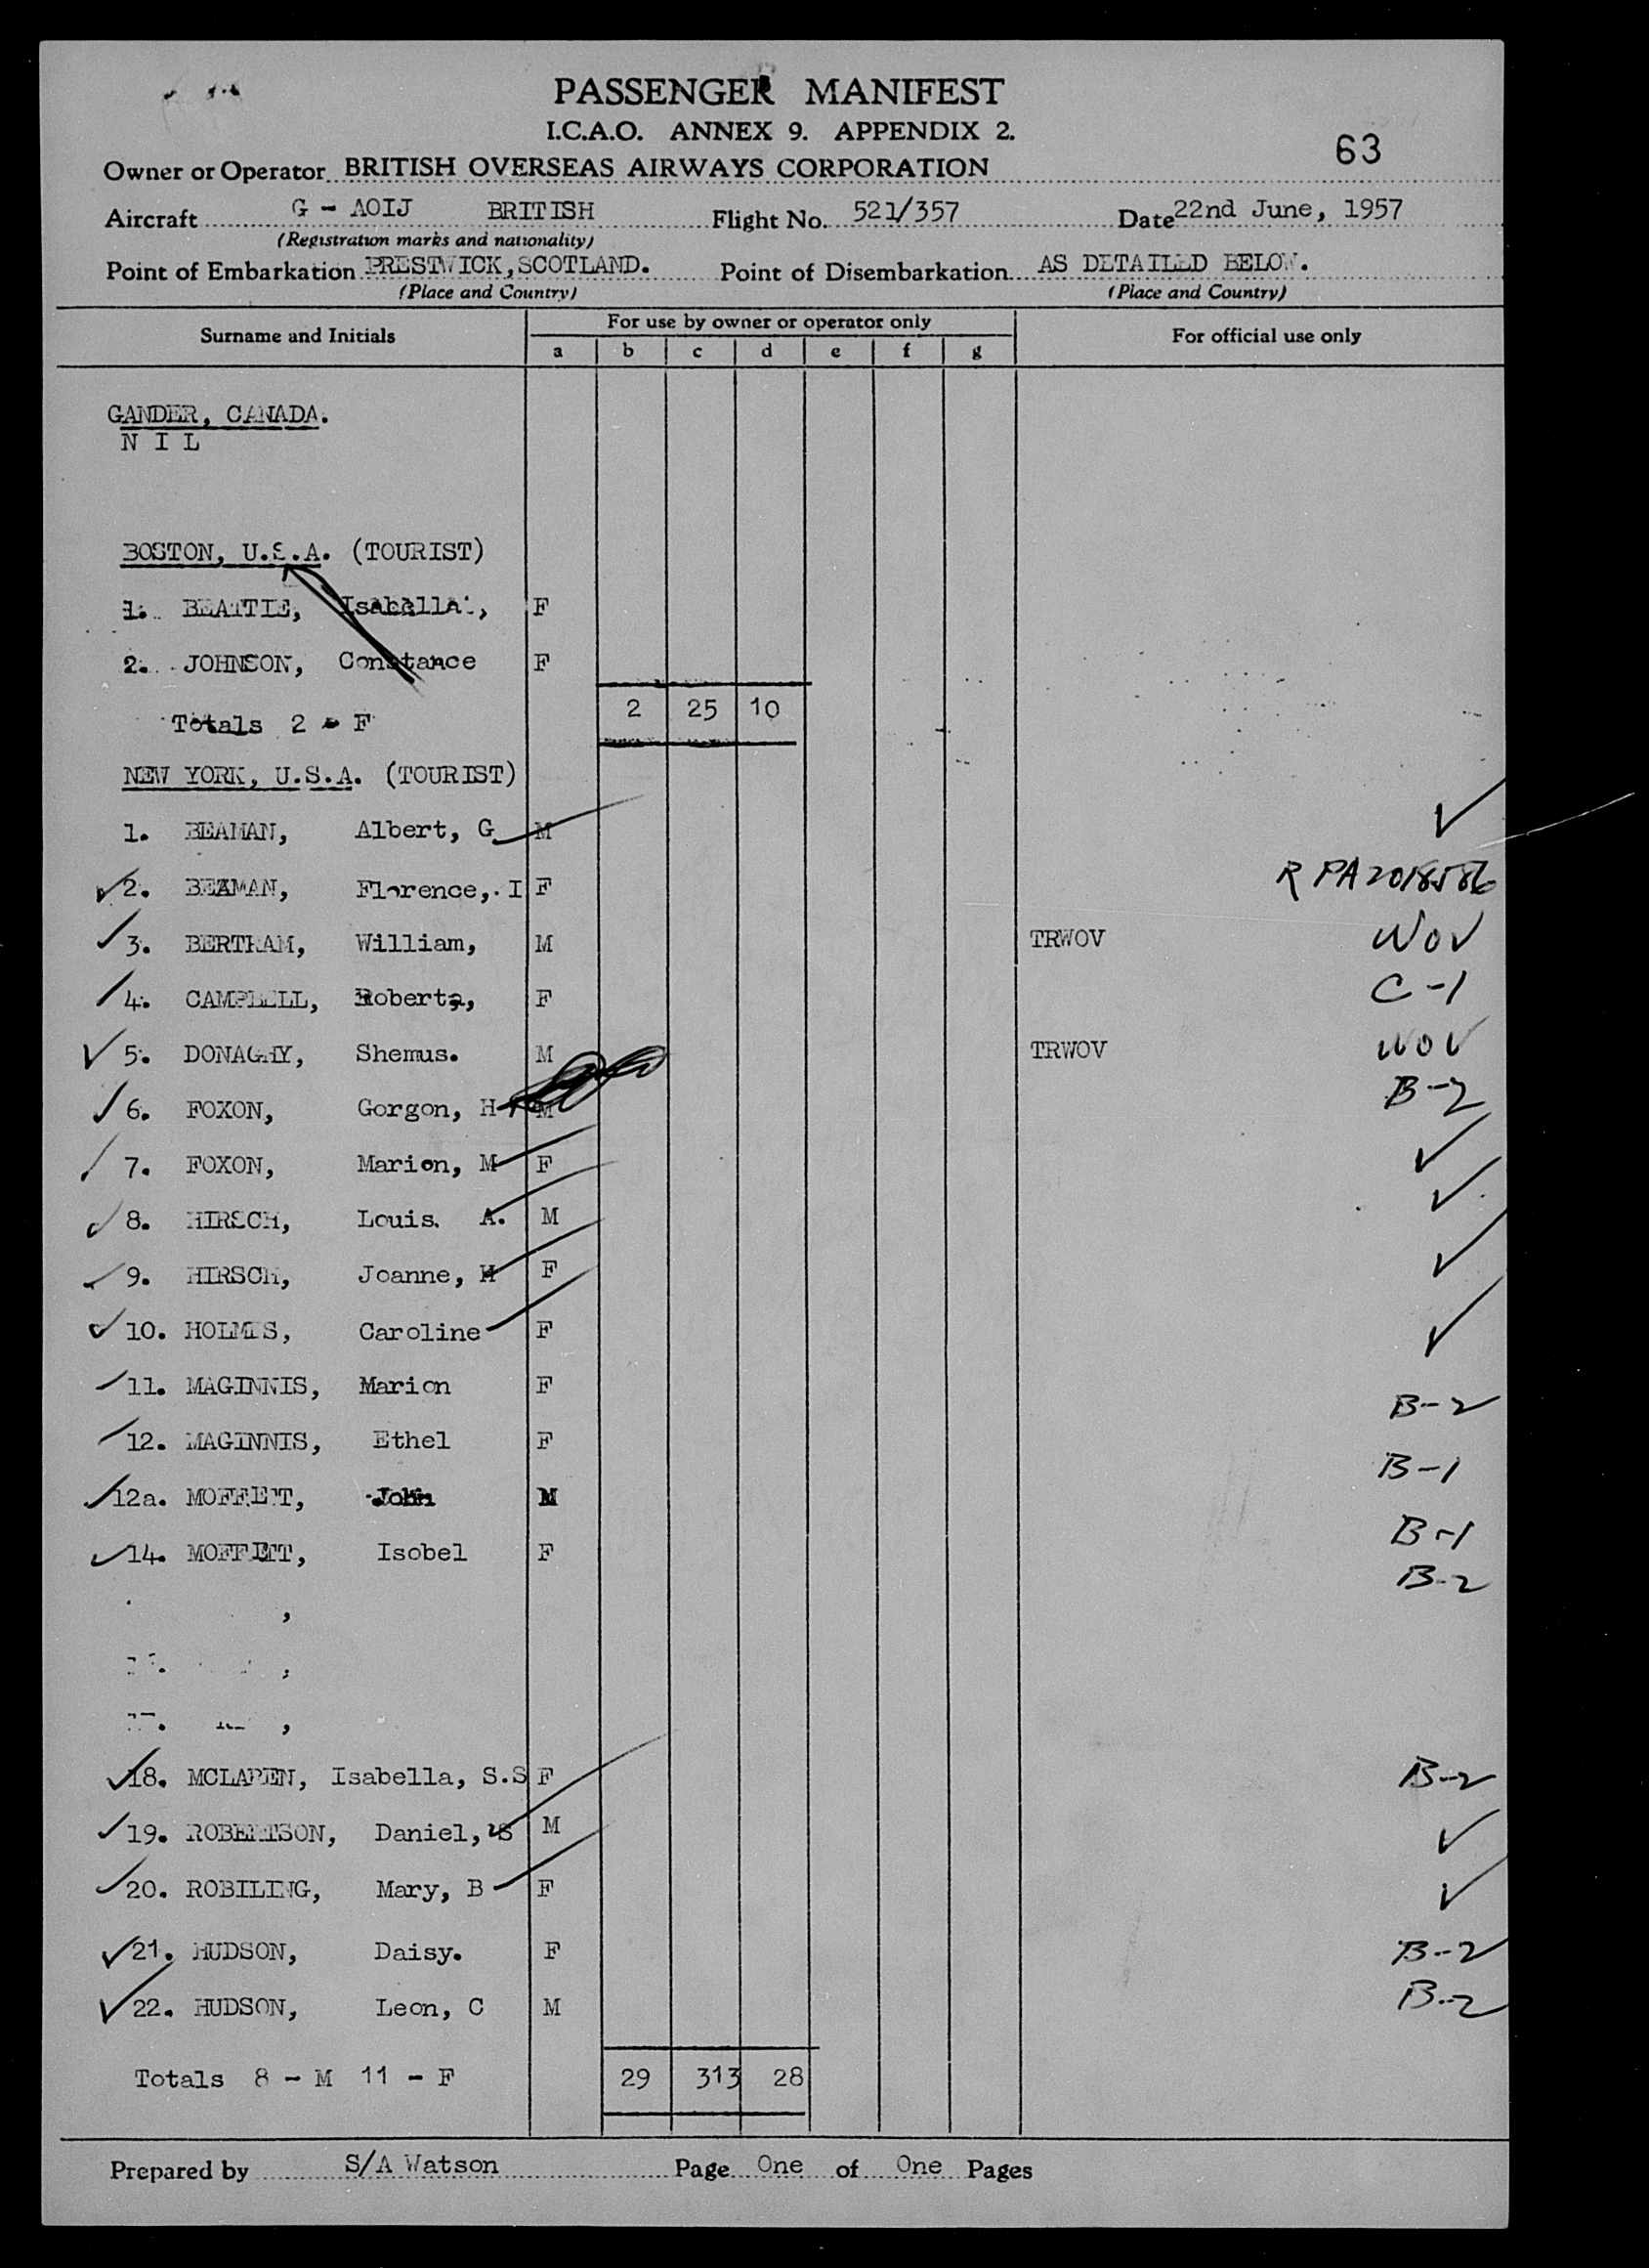 PASSENGER MANIFEST
I.C.A.O. ANNEX 9. APPENDIX 2.
63
Owner or Operator BRITISH OVERSEAS AIRWAYS CORPORATION
Aircraft G - AOIJ BRITISH Flight No. 521/357 Date 22nd June, 1957
(Registration marks and nationality)
Point of Embarkation PRESTWICK, SCOTLAND. Point of Disembarkation AS DETAILED BELOW.
(Place and Country) (Place and Country)
Surname and Initials For use by owner or operator only For official use only
a b c d e f g
GANDER, CANADA.
N I L
BOSTON, U.S.A. (TOURIST)
1. BEATTIE, Isabella, F
2. JOHNSON, Constance F
Totals 2 - F 2 25 10
NEW YORK, U.S.A. (TOURIST)
1. BEAMAN, Albert, G M ✓
✓ 2. BEAMAN, Florence, I F R PA2018586
✓ 3. BERTRAM, William, M TRWOV WOV
✓ 4. CAMPBELL, Roberta, F C-1
✓ 5. DONAGHY, Shemus. M TRWOV WOV
✓ 6. FOXON, Gorgon, H M B-2
✓ 7. FOXON, Marion, M F ✓
✓ 8. HIRSCH, Louis. A. M ✓
✓ 9. HIRSCH, Joanne, H F ✓
✓ 10. HOLMES, Caroline F ✓
✓ 11. MAGINNIS, Marion F B-2
✓ 12. MAGINNIS, Ethel F B-1
✓ 12a. MOFFETT, John M B-1
✓ 14. MOFFETT, Isobel F B-2
,
,
17. ,
✓ 18. MCLAREN, Isabella, S.S F B-2
✓ 19. ROBERTSON, Daniel, S M ✓
✓ 20. ROBILING, Mary, B F ✓
✓ 21. HUDSON, Daisy. F B-2
✓ 22. HUDSON, Leon, C M B-2
Totals 8 - M 11 - F 29 313 28
Prepared by S/A Watson Page One of One Pages